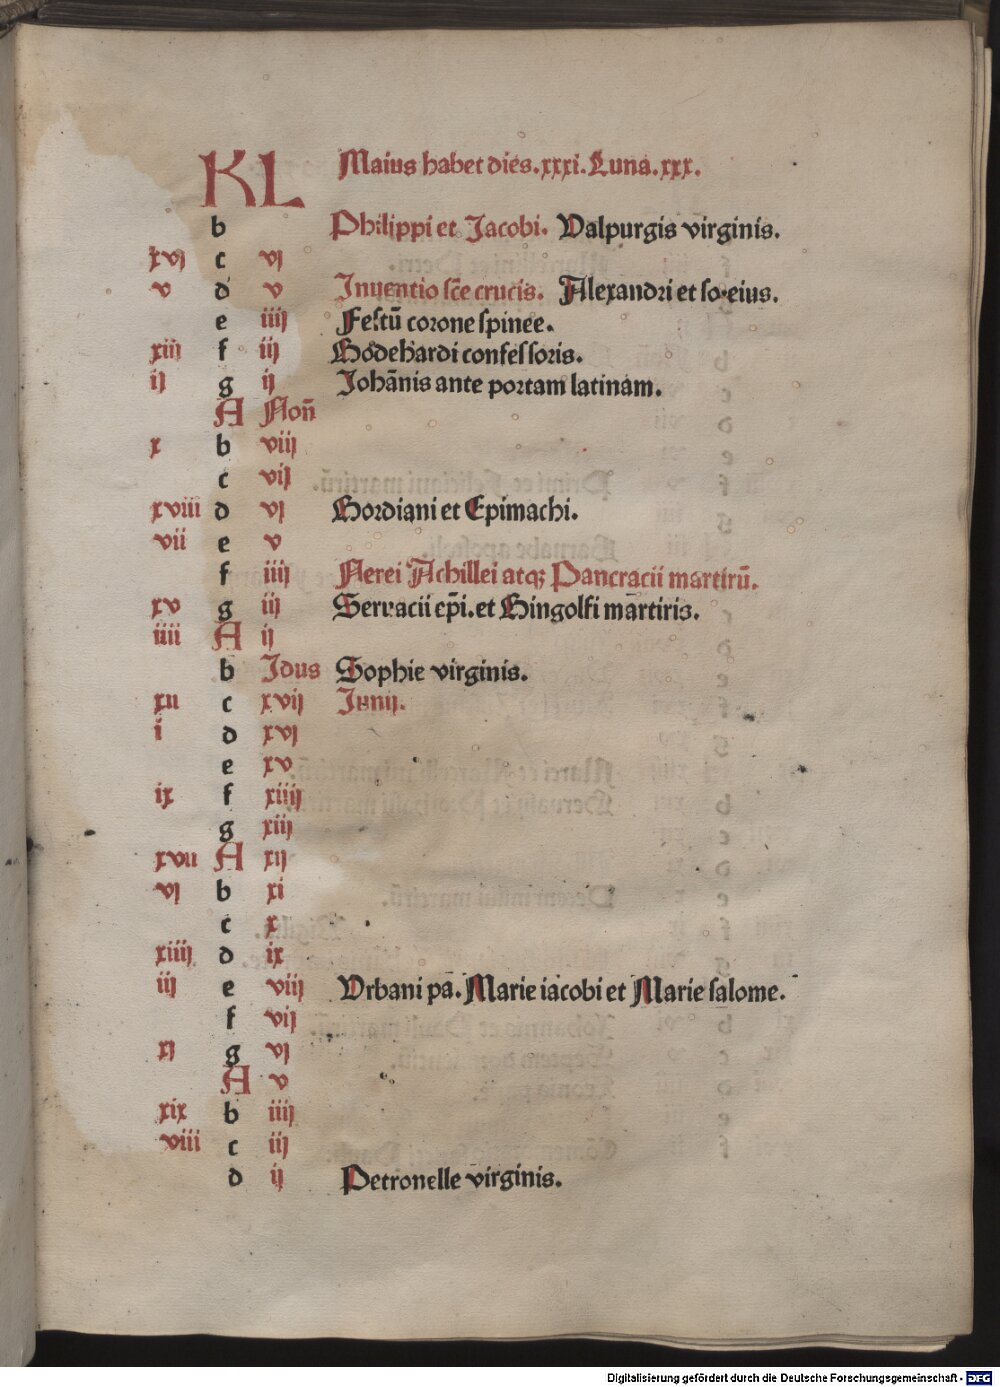 KL Maius habet dies. xxxi. Luna. xxx.
b Philippi et Jacobi. Valpurgis virginis.
xvj c vj
v d v Inuentio sce crucis. Alexandri et so. eius.
e iiij Festū corone spinee.
xiij f iij Godehardi confessoris.
ij g ij Johānis ante portam latinam.
A Non̄
x b viij
c vij
xviii d vj Gordiani et Epimachi.
vii e v
f iiij Nerei Achillei atqꝫ Pancracii martirū.
xv g iij Servacii ep̄i. et Gingolfi martiris.
iiii A ij
b Idus Sophie virginis.
xii c xvij Iunij.
i d xvj
e xv
ix f xiiij
g xiij
xvii A xij
vj b xi
c x
xiiij d ix
iij e viij Vrbani pā. Marie iacobi et Marie salome.
f vij
xj g vj
A v
xix b iiij
viii c iij
d ij Petronelle virginis.
Digitalisierung gefördert durch die Deutsche Forschungsgemeinschaft - DFG